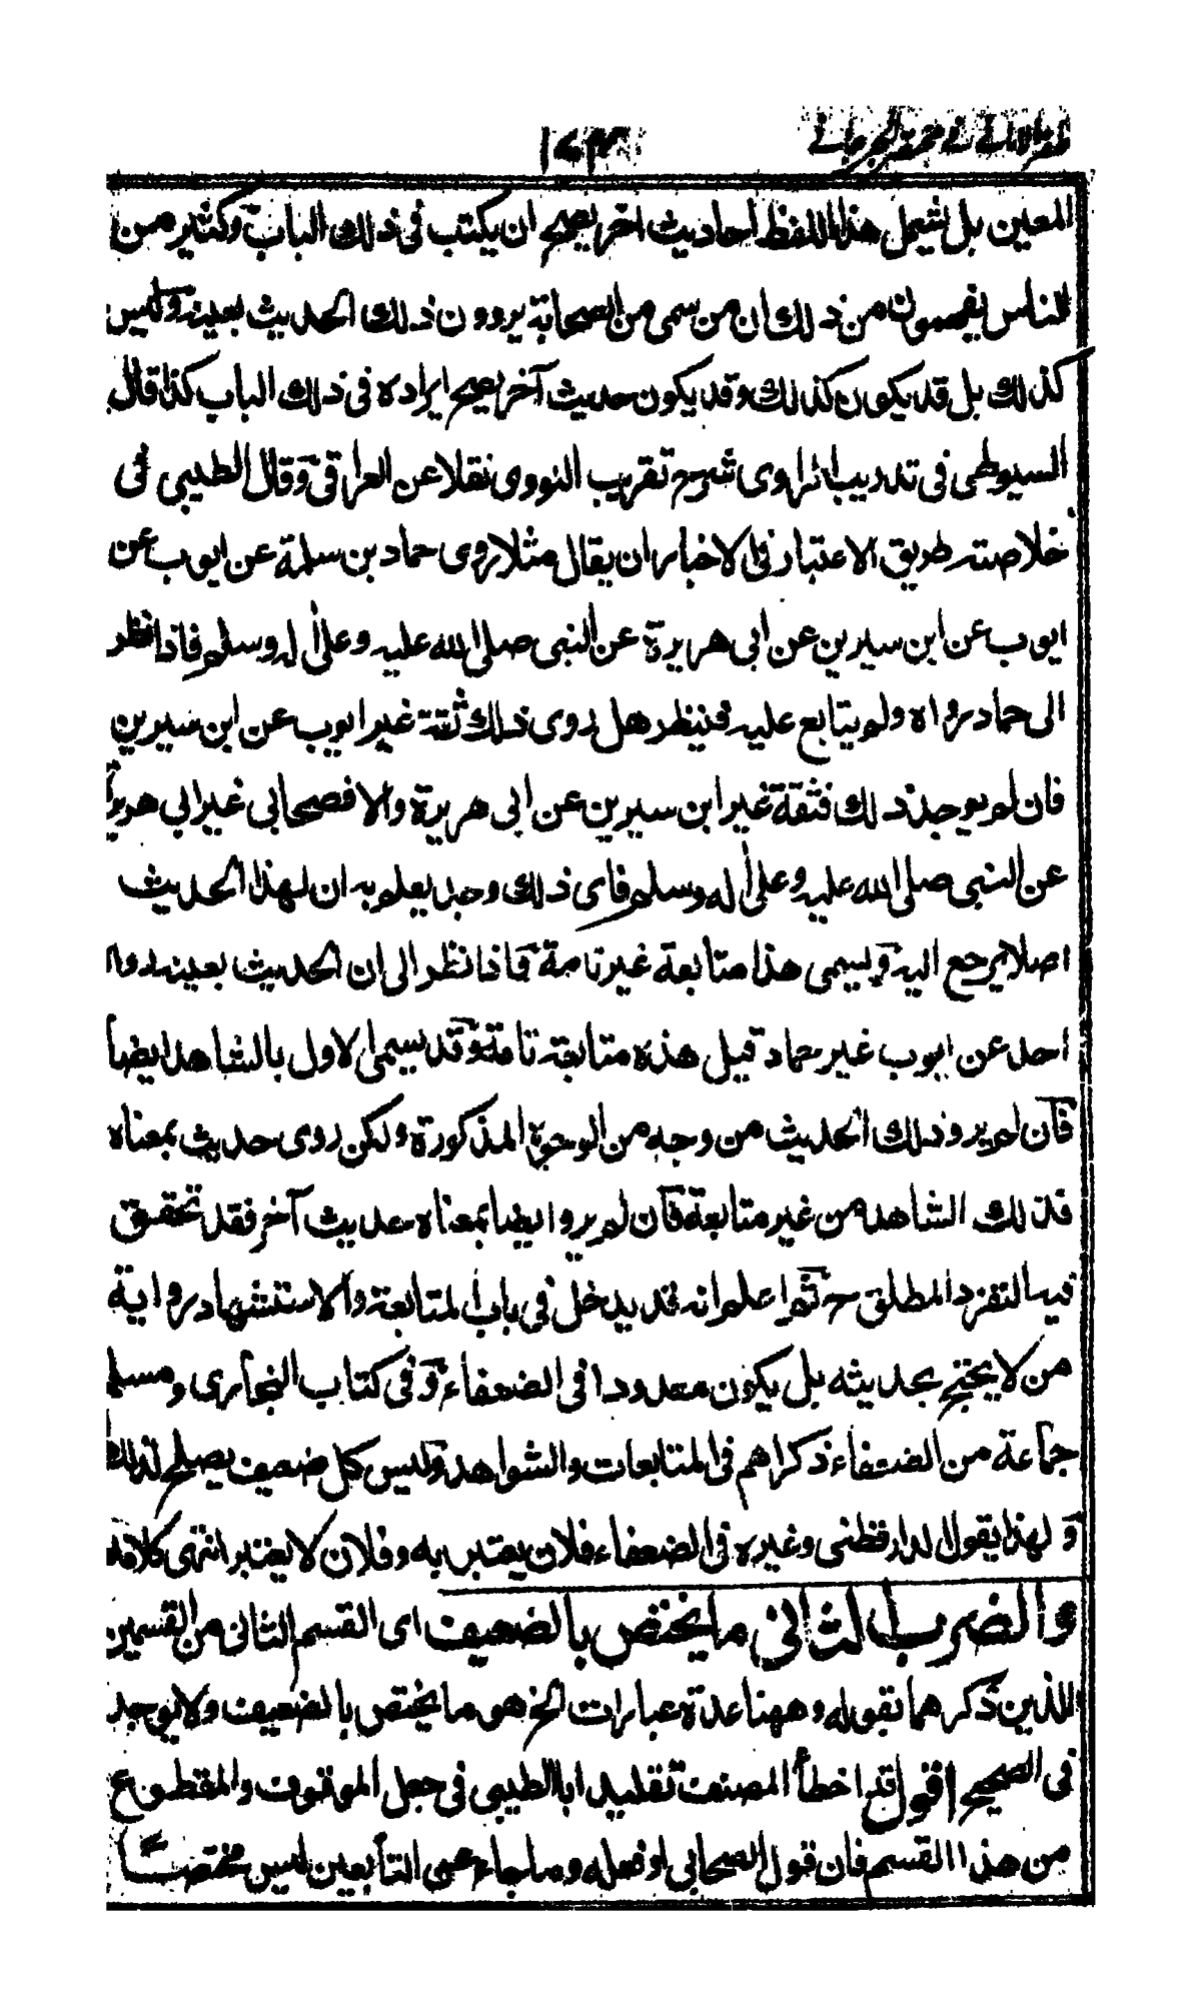 ظفر الامانی فی مختصر الجرجانی
المعين بل يشمل هذا اللفظ احاديث اخر يصح ان يكتب فى ذلك الباب وكثير من
الناس يفهمون من ذلك ان من سمى من الصحابة يروون ذلك الحديث بعينه وليس
كذلك بل قد يكون كذلك وقد يكون حديث آخر يصح ايراده فى ذلك الباب كذا قال
السيوطى فى تدريب الراوى شرح تقريب النووى نقلا عن العراقى وقال الطيبى فى
خلاصته طريق الاعتبار فى الاخبار ان يقال مثلا روى حماد بن سلمة عن ايوب عن
ايوب عن ابن سيرين عن ابى هريرة عن النبى صلى الله عليه وعلى اله وسلم فاذا نظر
الى حماد رواه ولم يتابع عليه فينظر هل روى ذلك ثقة غير ايوب عن ابن سيرين
فان لم يوجد ذلك فثقة غير ابن سيرين عن ابى هريرة والا فصحابى غير ابى هريرة
عن النبى صلى الله عليه وعلى اله وسلم فاى ذلك وجد يعلم به ان لهذا الحديث
اصلا يرجع اليه ويسمى هذا متابعة غير تامة فاذا نظر الى ان الحديث بعينه رواه
احد عن ايوب غير حماد قيل هذه متابعة تامة وقد يسمى الاول بالشاهد ايضا
فان لم يرو ذلك الحديث من وجه من الوجوه المذكورة ولكن روى حديث بمعناه
فذلك الشاهد من غير متابعة فان لم يرو ايضا بمعناه حديث آخر فقد تحقق
فيه التفرد المطلق ح ثم اعلم انه قد يدخل فى باب المتابعة والاستشهاد رواية
من لا يحتج بحديثه بل يكون معدودا فى الضعفاء وفى كتاب البخارى ومسلم
جماعة من الضعفاء ذكراهم فى المتابعات والشواهد وليس كل ضعيف يصلح لذلك
ولهذا يقول الدارقطنى وغيره فى الضعفاء فلان يعتبر به وفلان لا يعتبر انتهى كلامه
والضرب الثانى ما يختص بالضعيف اى القسم الثانى من القسمين
اللذين ذكرهما بقوله وههنا عدة عبارات الخ هو ما يختص بالضعيف ولا يوجد
فى الصحيح اقول قد اخطأ المصنف تقليدا بالطيبى فى جعل الموقوف والمقطوع
من هذا القسم فان قول الصحابى او فعله وما جاء عن التابعين ليس مختصا